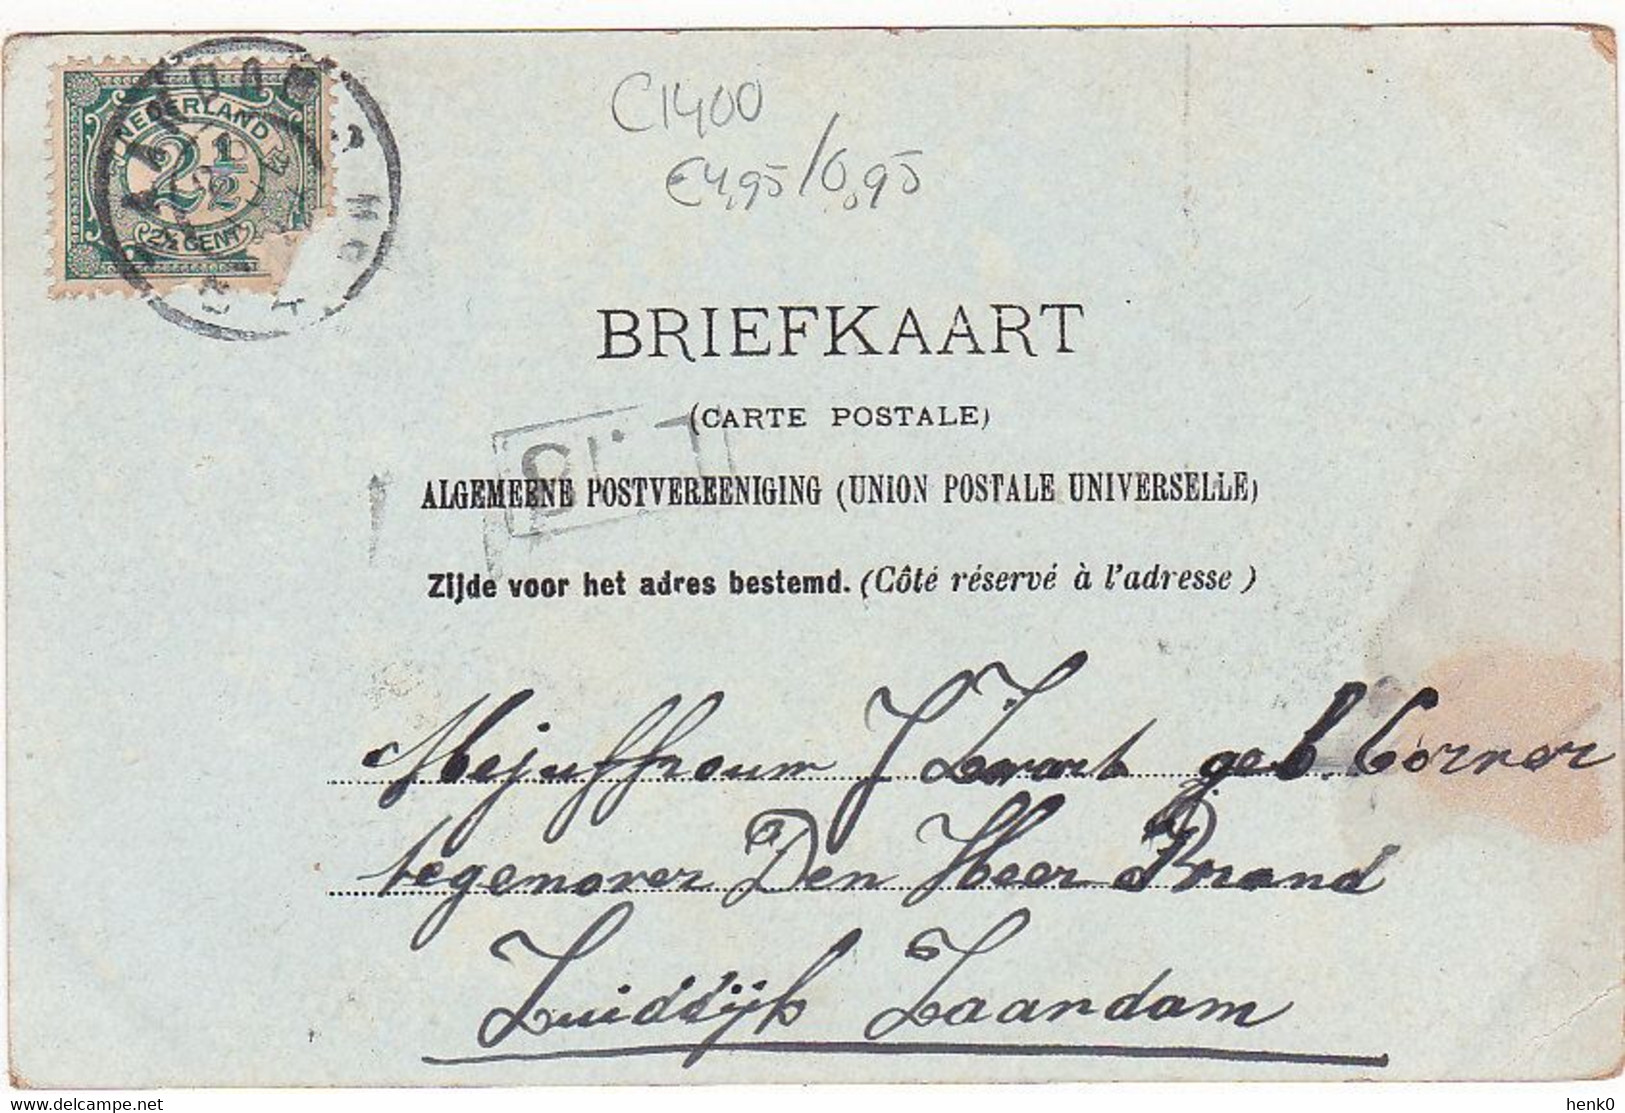 NEDERLAND
2 1/2
2½ CENT
C1400
€4,95/0,95
BRIEFKAART
(CARTE POSTALE)
ALGEMEENE POSTVEREENIGING (UNION POSTALE UNIVERSELLE)
Zijde voor het adres bestemd. (Côté réservé à l'adresse)
Mejuffrouw J Zwart geb. Corner
tegenover Den Heer Brand
Zuiddijk Zaandam
© www.delcampe.net
henk0